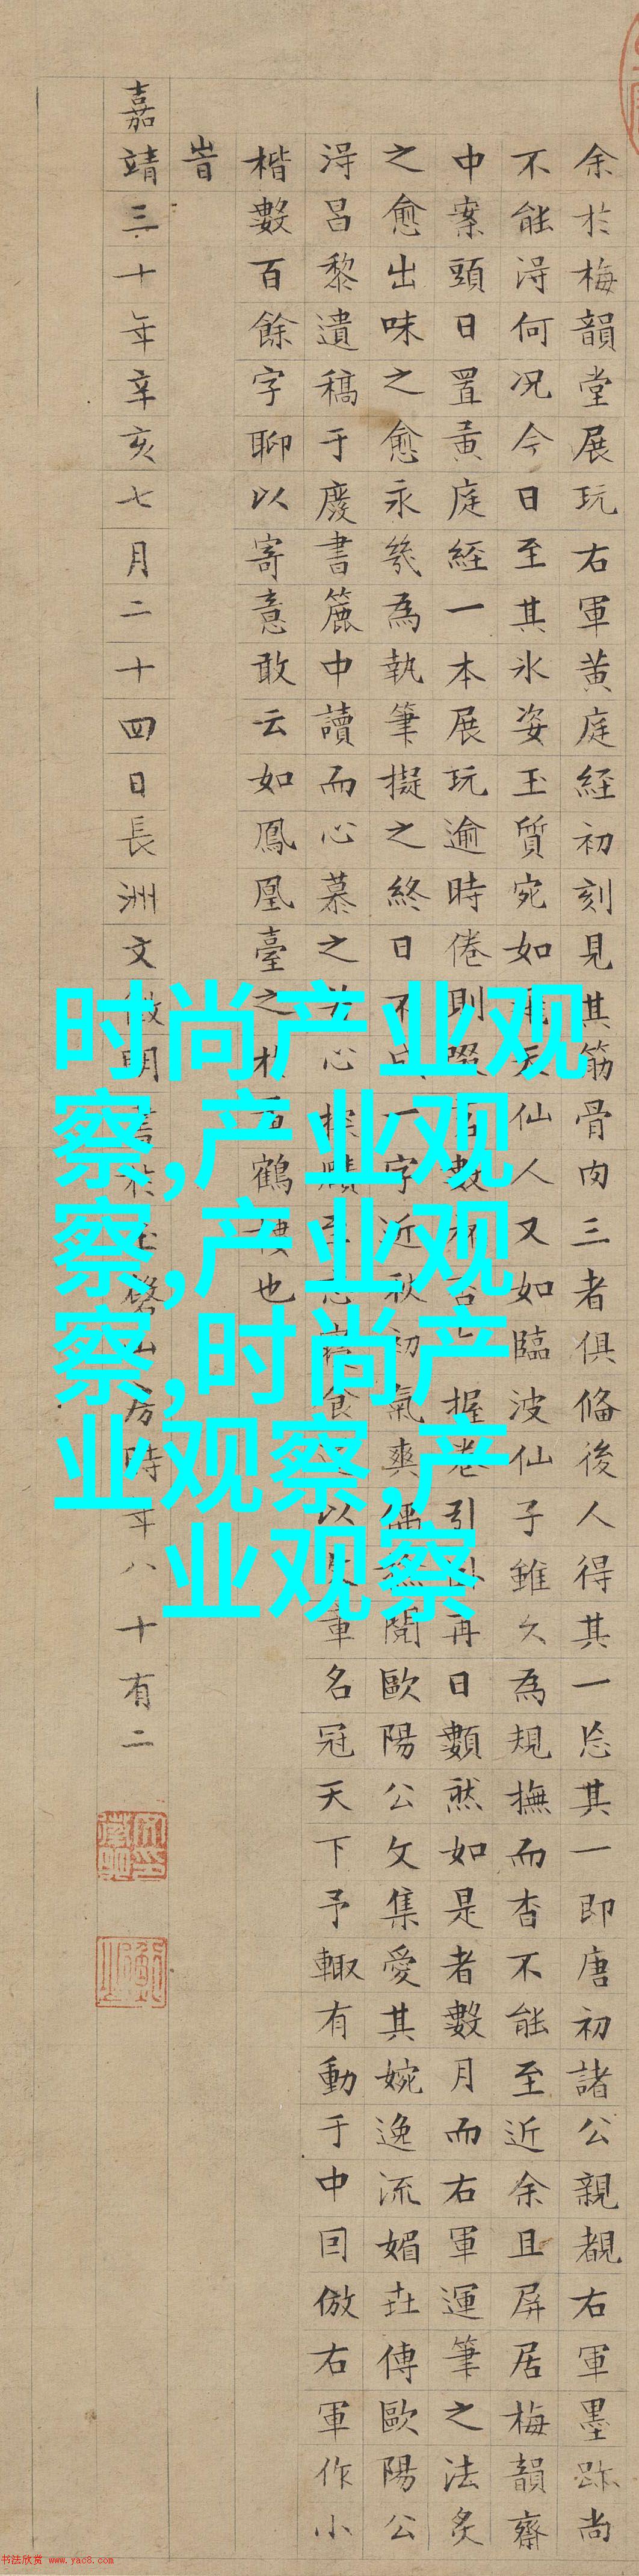 余於梅韻堂展玩右軍黃庭經初刻見其筋骨肉三者俱俻後人得其一忘其一即唐初諸公親覩右軍墨跡尚
不能淂何况今日至其氷姿玉質宛如天仙人又如臨波仙子雖久為規撫而杳不能至近余且屏居梅韻齋
中案頭日置黃庭經一本展玩逾時倦則數握卷引再日數然如是者數月而右軍運筆之法炙
之愈出味之愈永幾為執筆擬之終日不一字近秋初氣爽偶閲歐陽公文集愛其婉逸流媚因傳歐陽公
淂昌黎遺稿于廢書簏中讀而心慕之心探賾食以名冠天下予輙有動于中囙倣右軍作小
楷數百餘字聊以寄意敢云如鳳凰臺之於鶴樓也
旹
嘉靖三十年辛亥七月二十四日長洲文徵明書於玉磬山房時年八十有二
时尚产业观
察,产业观
察,产业观
察,时尚产
业观察,产
业观察
书法欣赏 www.yac8.com